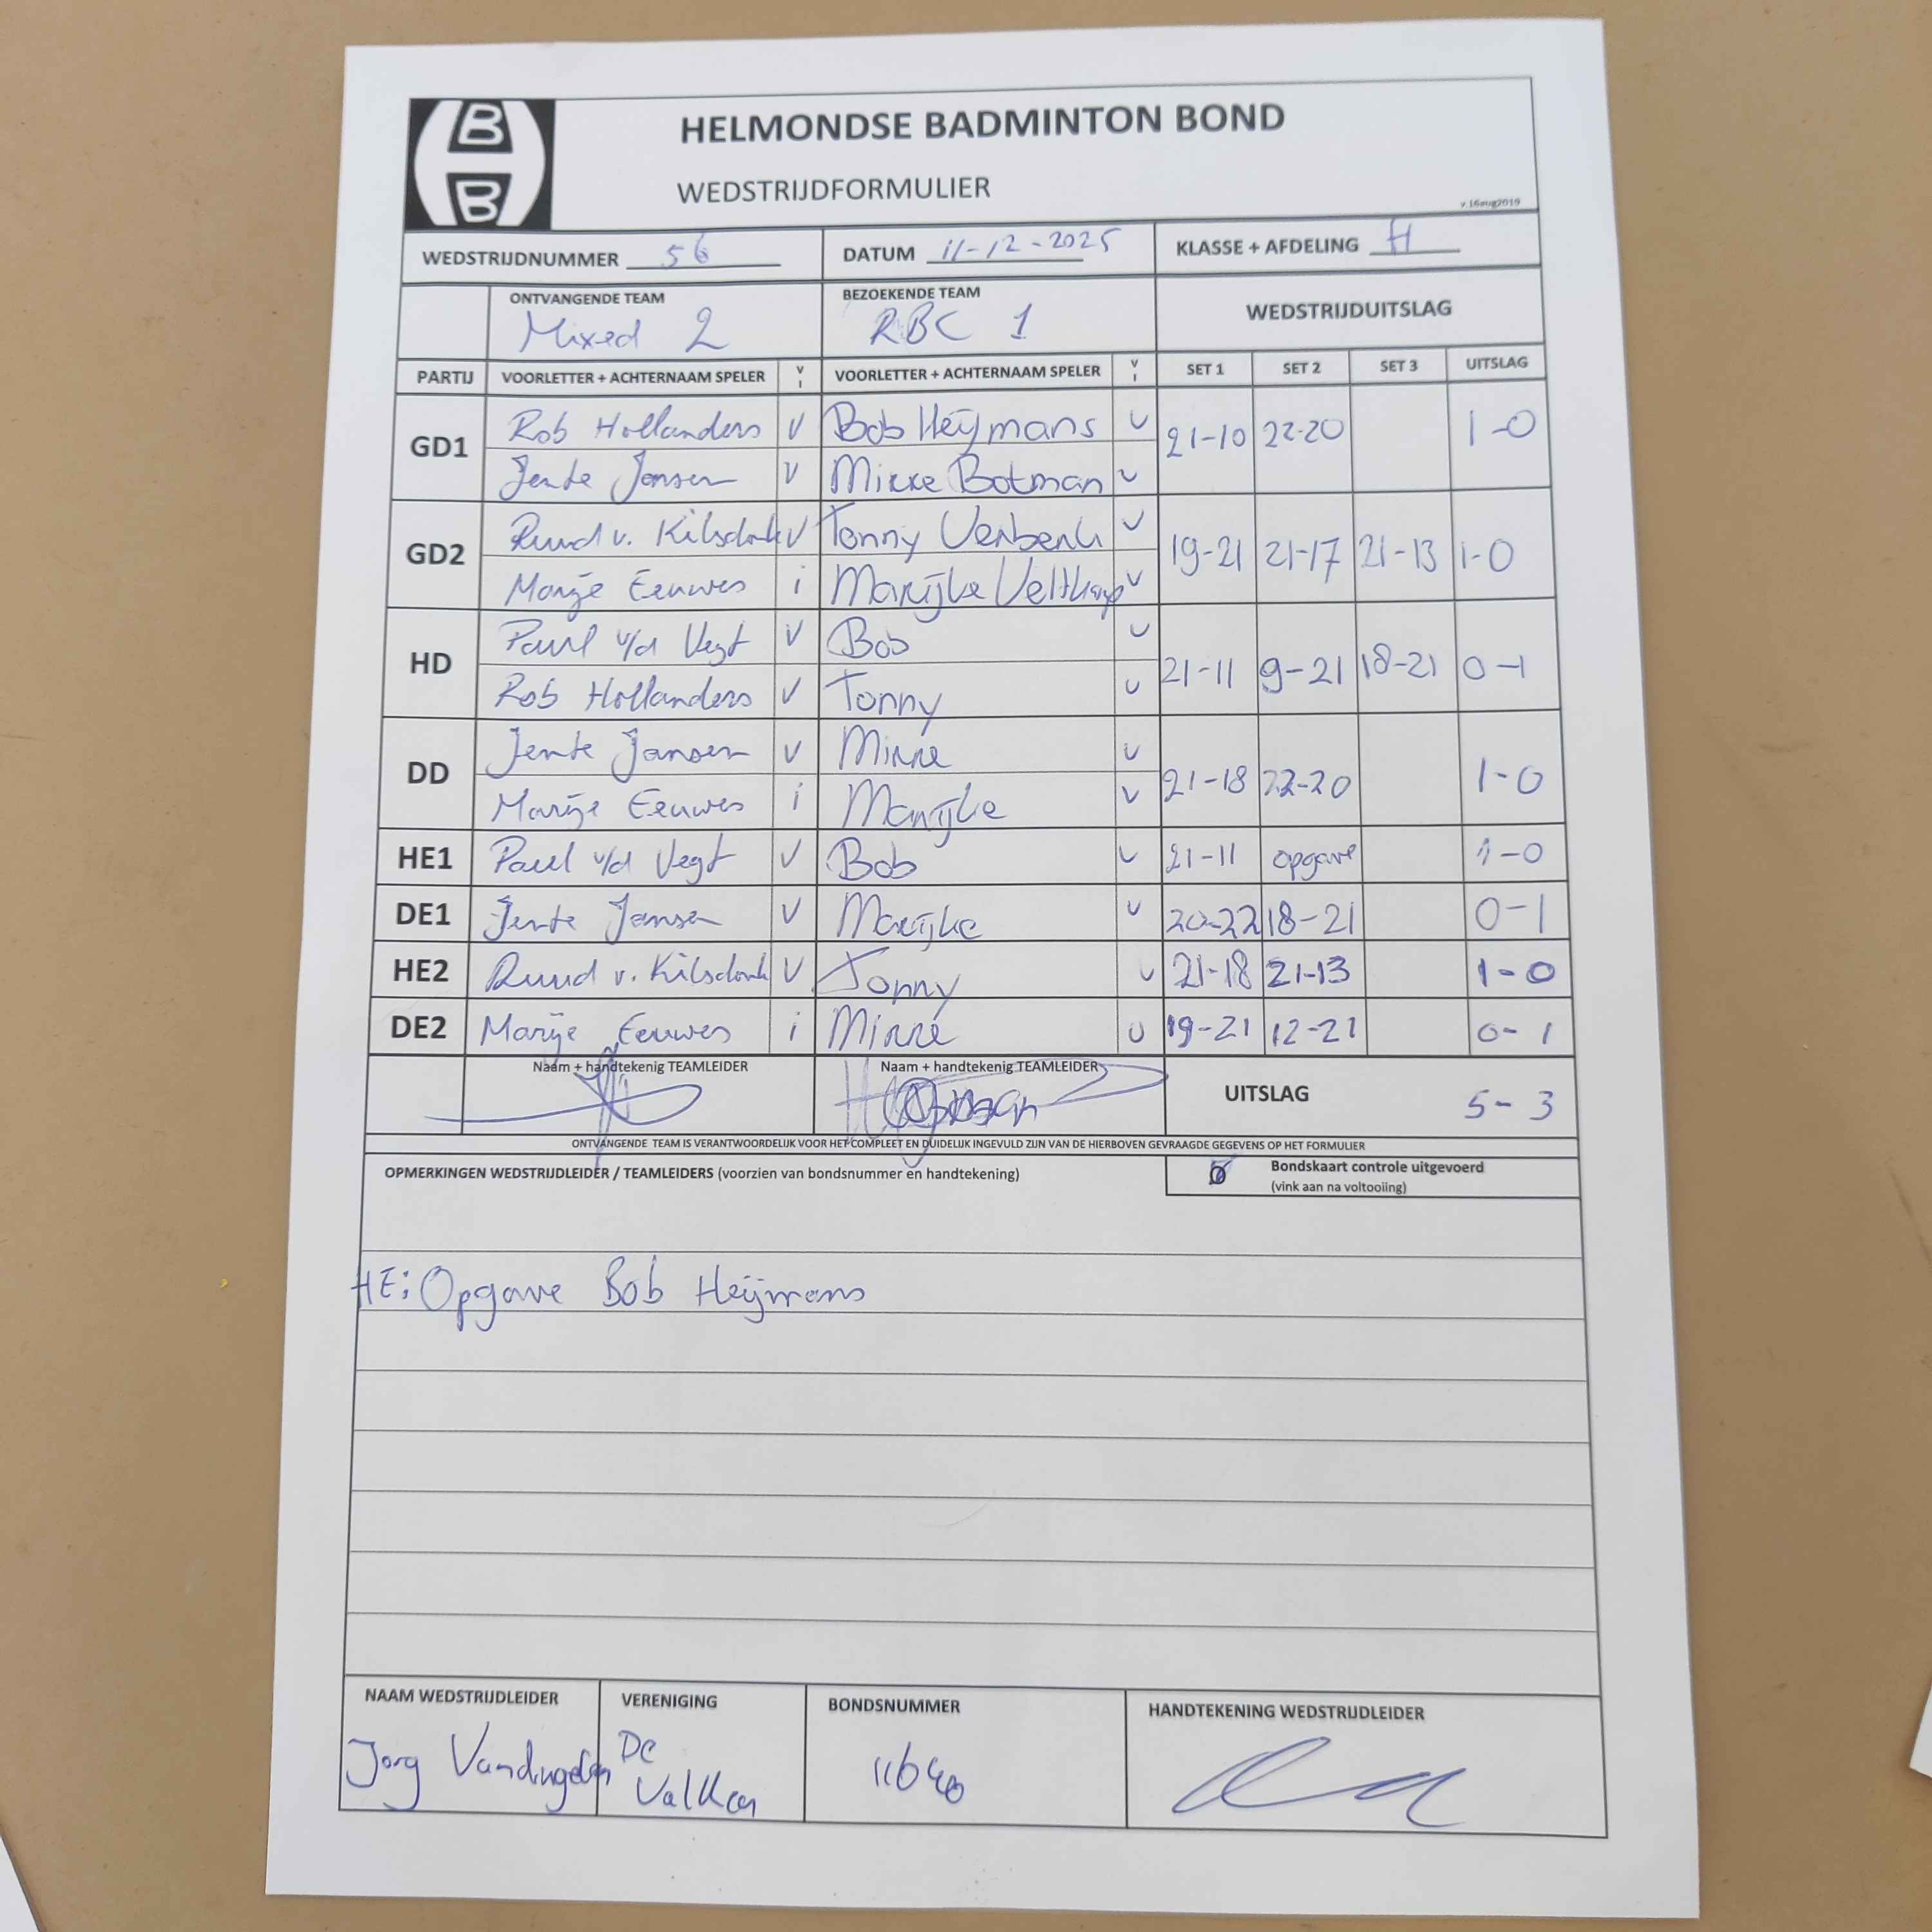 B
B
HELMONDSE BADMINTON BOND
WEDSTRIJDFORMULIER
v.16aug2019
WEDSTRIJDNUMMER 56 DATUM 11-12-2025 KLASSE + AFDELING H
ONTVANGENDE TEAM BEZOEKENDE TEAM WEDSTRIJDUITSLAG
Mixed 2 RBC 1
PARTIJ VOORLETTER + ACHTERNAAM SPELER V I VOORLETTER + ACHTERNAAM SPELER V I SET 1 SET 2 SET 3 UITSLAG
GD1 Rob Hollanders V Bob Heijmans V 21-10 22-20 1-0
Jente Jansen V Mirre Botman V
GD2 Ruud v. Kilsdonk V Tonny Verberk V 19-21 21-17 21-13 1-0
Marije Eeuwes i Marijke Veltkamp V
HD Paul v/d Vegt V Bob V 21-11 9-21 18-21 0-1
Rob Hollanders V Tonny V
DD Jente Jansen V Mirre V 21-18 22-20 1-0
Marije Eeuwes i Marijke V
HE1 Paul v/d Vegt V Bob V 21-11 opgave 1-0
DE1 Jente Jansen V Marijke V 20-22 18-21 0-1
HE2 Ruud v. Kilsdonk V Tonny V 21-18 21-13 1-0
DE2 Marije Eeuwes i Mirre V 19-21 12-21 0-1
Naam + handtekenig TEAMLEIDER Naam + handtekenig TEAMLEIDER
UITSLAG 5-3
ONTVANGENDE TEAM IS VERANTWOORDELIJK VOOR HET COMPLEET EN DUIDELIJK INGEVULD ZIJN VAN DE HIERBOVEN GEVRAAGDE GEGEVENS OP HET FORMULIER
OPMERKINGEN WEDSTRIJDLEIDER / TEAMLEIDERS (voorzien van bondsnummer en handtekening) Bondskaart controle uitgevoerd
(vink aan na voltooiing)
HE: Opgave Bob Heijmans
NAAM WEDSTRIJDLEIDER VERENIGING BONDSNUMMER HANDTEKENING WEDSTRIJDLEIDER
Jorg De